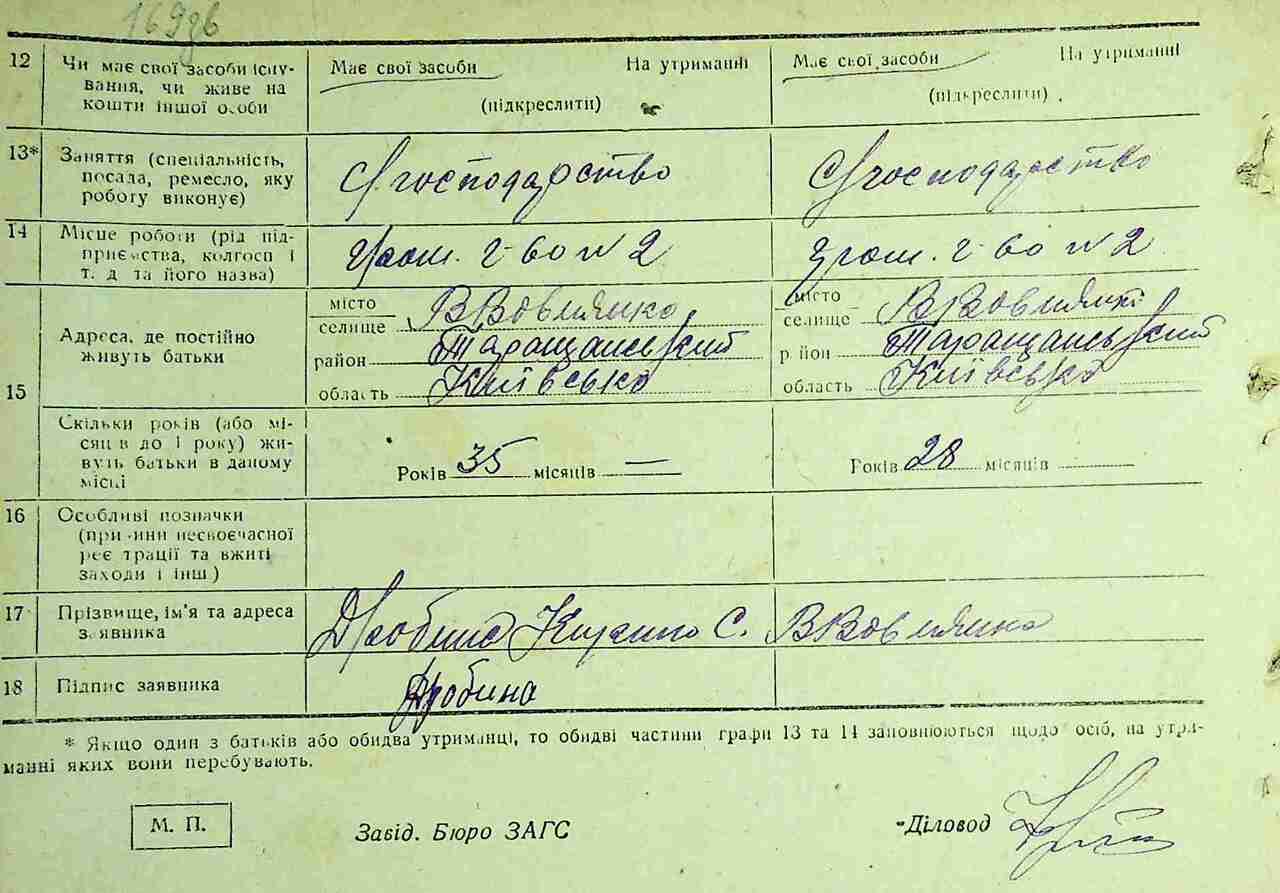 169дв
12 Чи має свої засоби існу- Має свої засоби На утриманні Має свої засоби На утриманні
вання, чи живе на (підкреслити) (підкреслити)
кошти іншої особи
13* Заняття (спеціальність, С/господарство С/господарство
посада, ремесло, яку
роботу виконує)
14 Місце роботи (рід під- Гром. г-во № 2 Гром. г-во № 2
приємства, колгосп і
т. д та його назва)
15 Адреса, де постійно живуть батьки
місто
селище ВВовнянка
район Таращанський
область Київська
місто
селище ВВовнянка
район Таращанський
область Київська
Скільки років (або мі-
сяців до 1 року) жи-
вуть батьки в даному
місці
Років 35 місяців — Років 28 місяців
16 Особливі позначки
(причини несвоєчасної
реєстрації та вжиті
заходи і інш.)
17 Прізвище, ім'я та адреса Дробина С. ВВовнянка
заявника
18 Підпис заявника Дробина
* Якщо один з батьків або обидва утриманці, то обидві частини графи 13 та 14 заповнюються щодо осіб, на утри-
манні яких вони перебувають.
М. П. Завід. Бюро ЗАГС Діловод